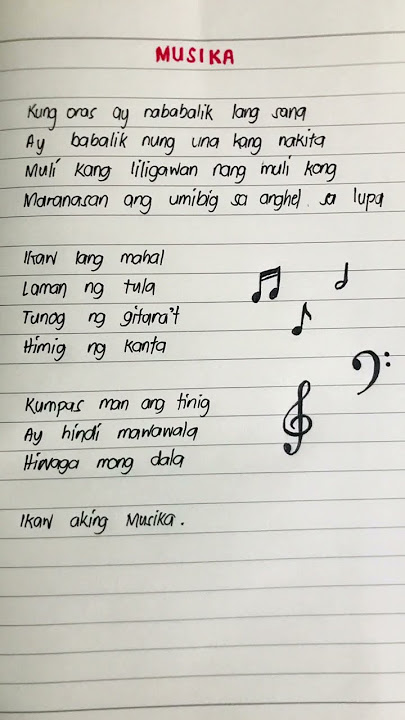 MUSIKA
Kung oras ay nababalik lang sana
Ay babalik nung una kang nakita
Muli kang liligawan nang muli kong
Maranasan ang umibig sa anghel sa lupa
Ikaw lang mahal
Laman ng tula
Tunog ng gitara't
Himig ng kanta
Kumpas man ang tinig
Ay hindi mawawala
Hiwaga mong dala
Ikaw aking Musika.